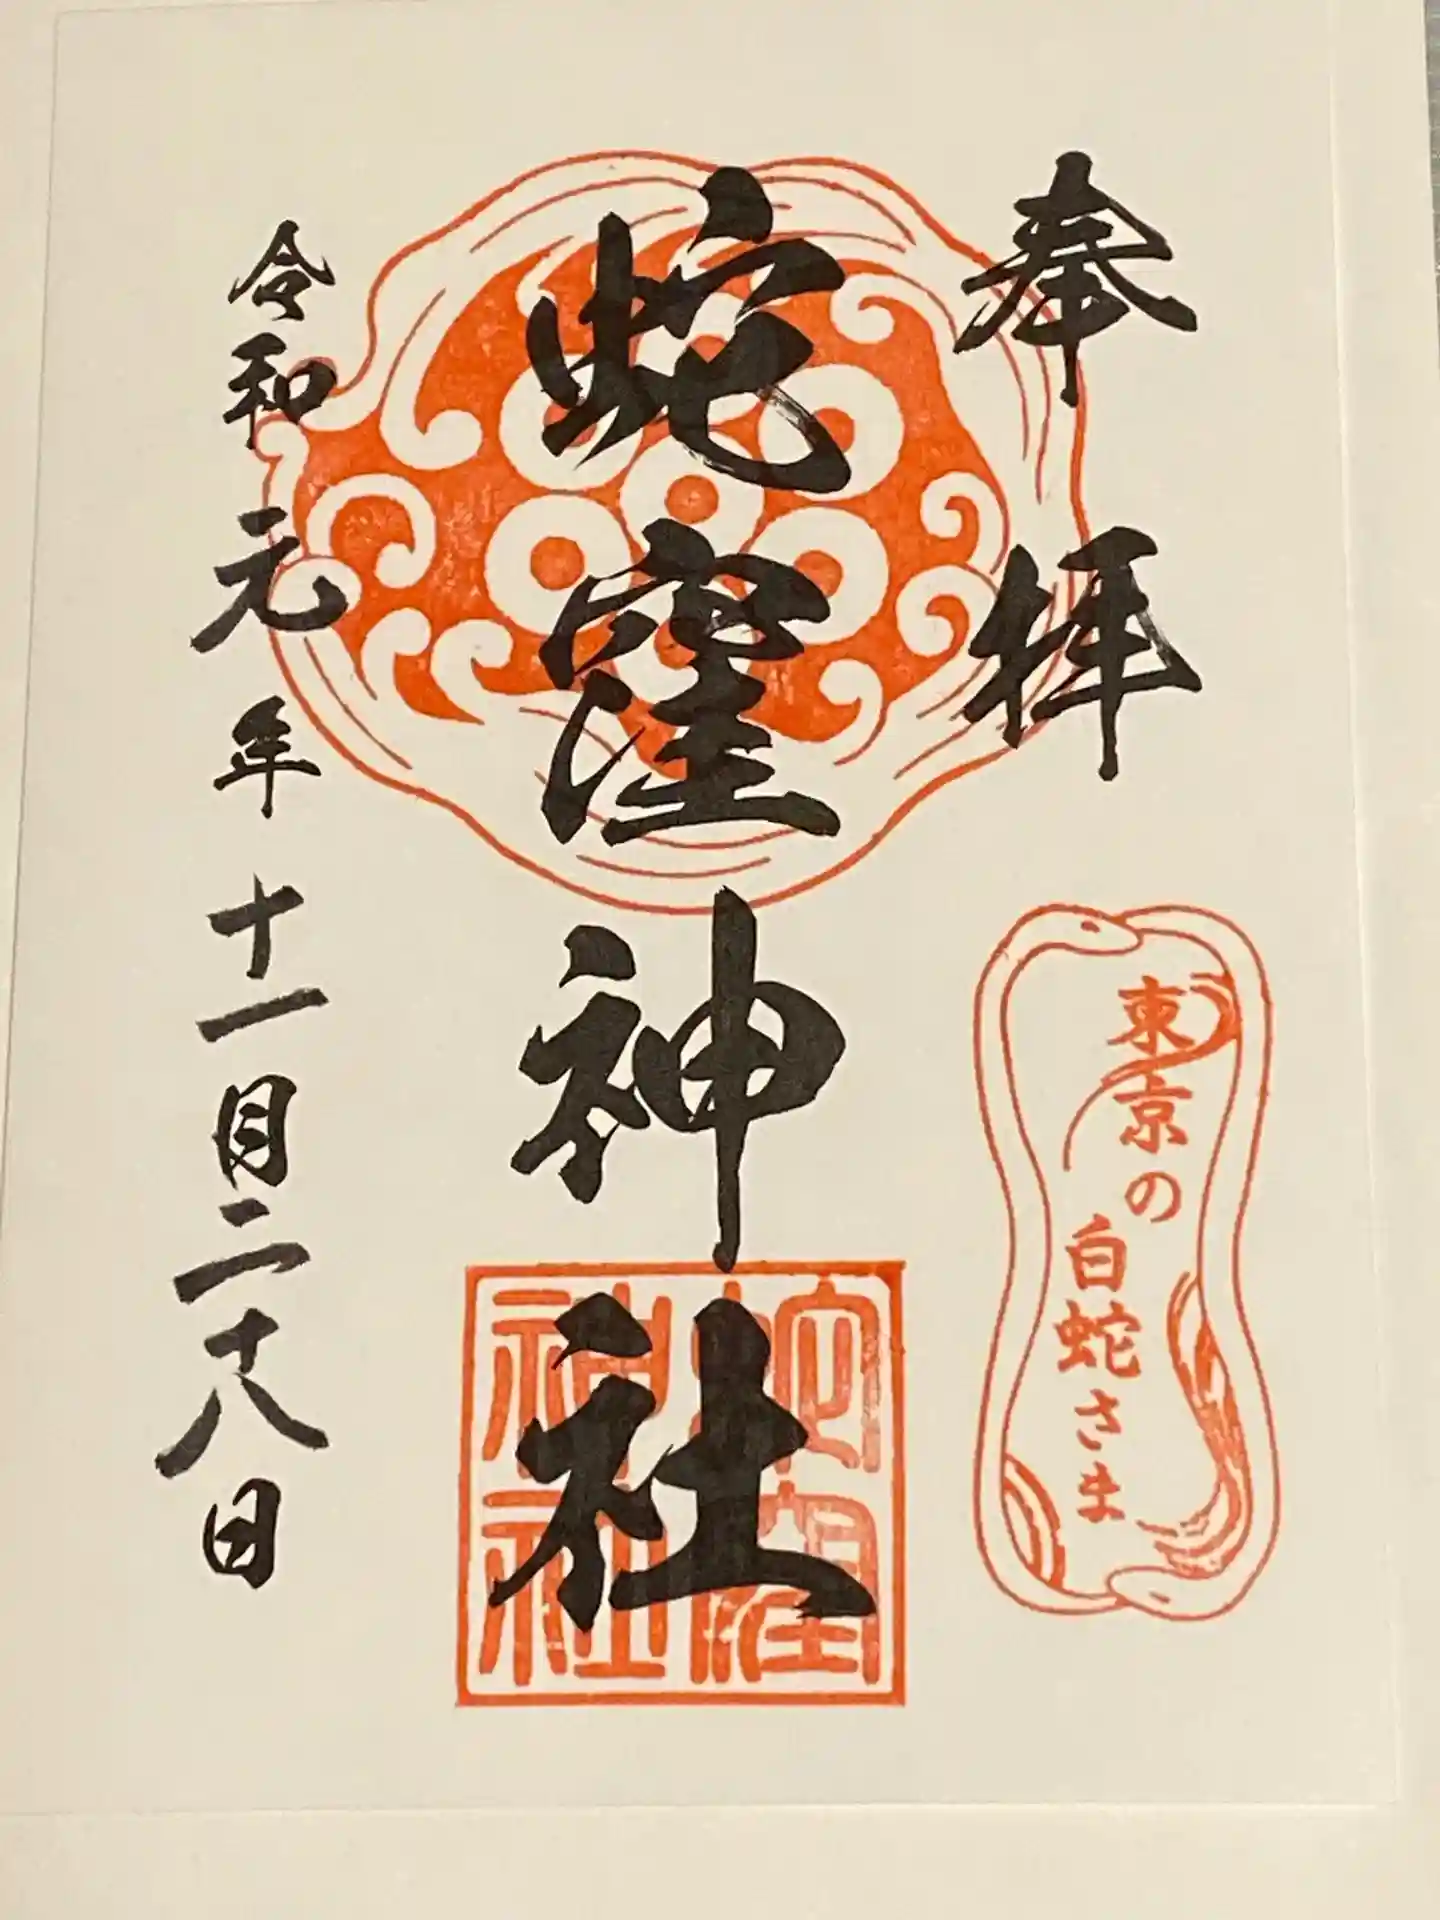 奉拝
東京の
白蛇さま
蛇窪神社
蛇窪
神社
令和元年十一月二十八日